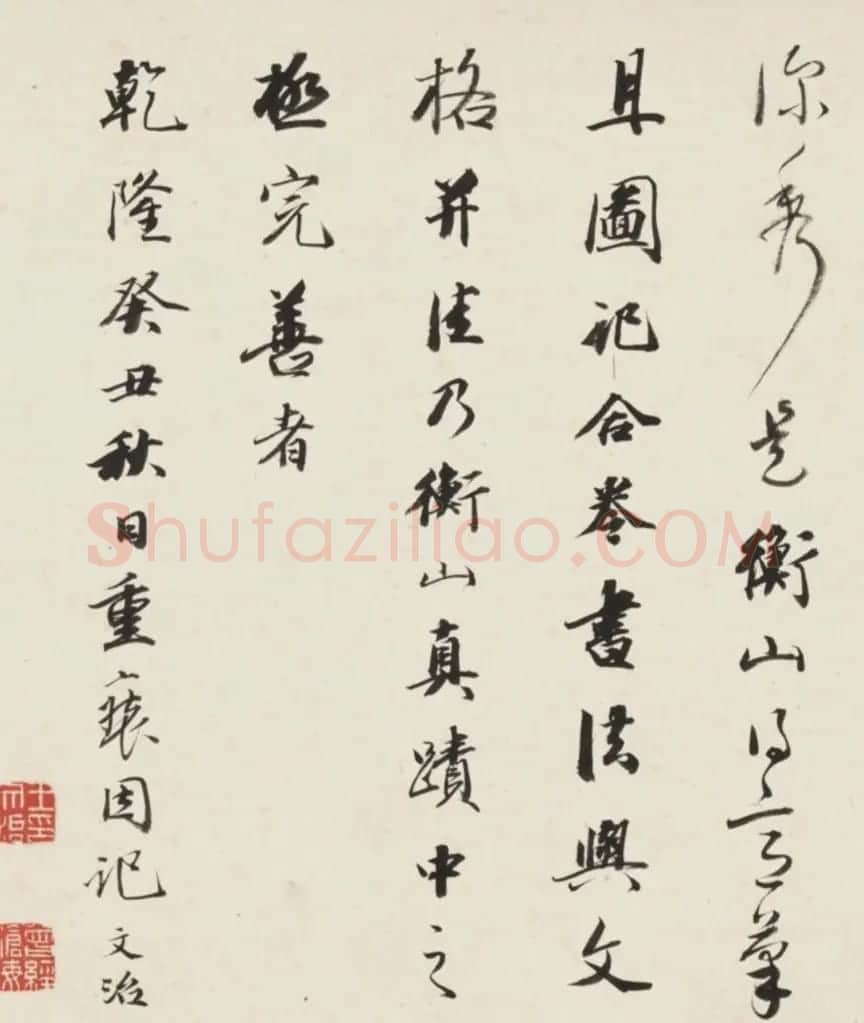 深秀是衡山得意筆
且圖記合卷書法與文
格并佳乃衡山真蹟中之
極完善者
乾隆癸丑秋日重裝因記文治
王文治印
曾經滄海
Shufaziliao.COM